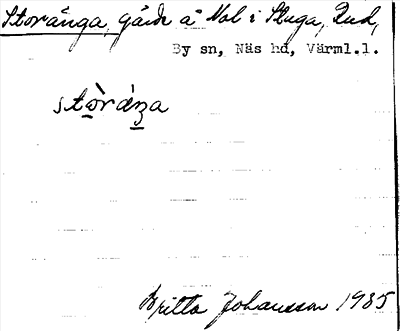 Storänga, gärde å Nol i Stuga, Rud,
By sn, Näs hd, Värml.l.
stὼráŋa
Britta Johansson 1935